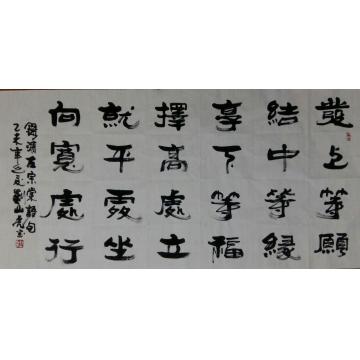 發上等願
結中等緣
享下等福
擇高處立
就平處坐
向寬處行
錄清左宗棠語句
乙未年之夏